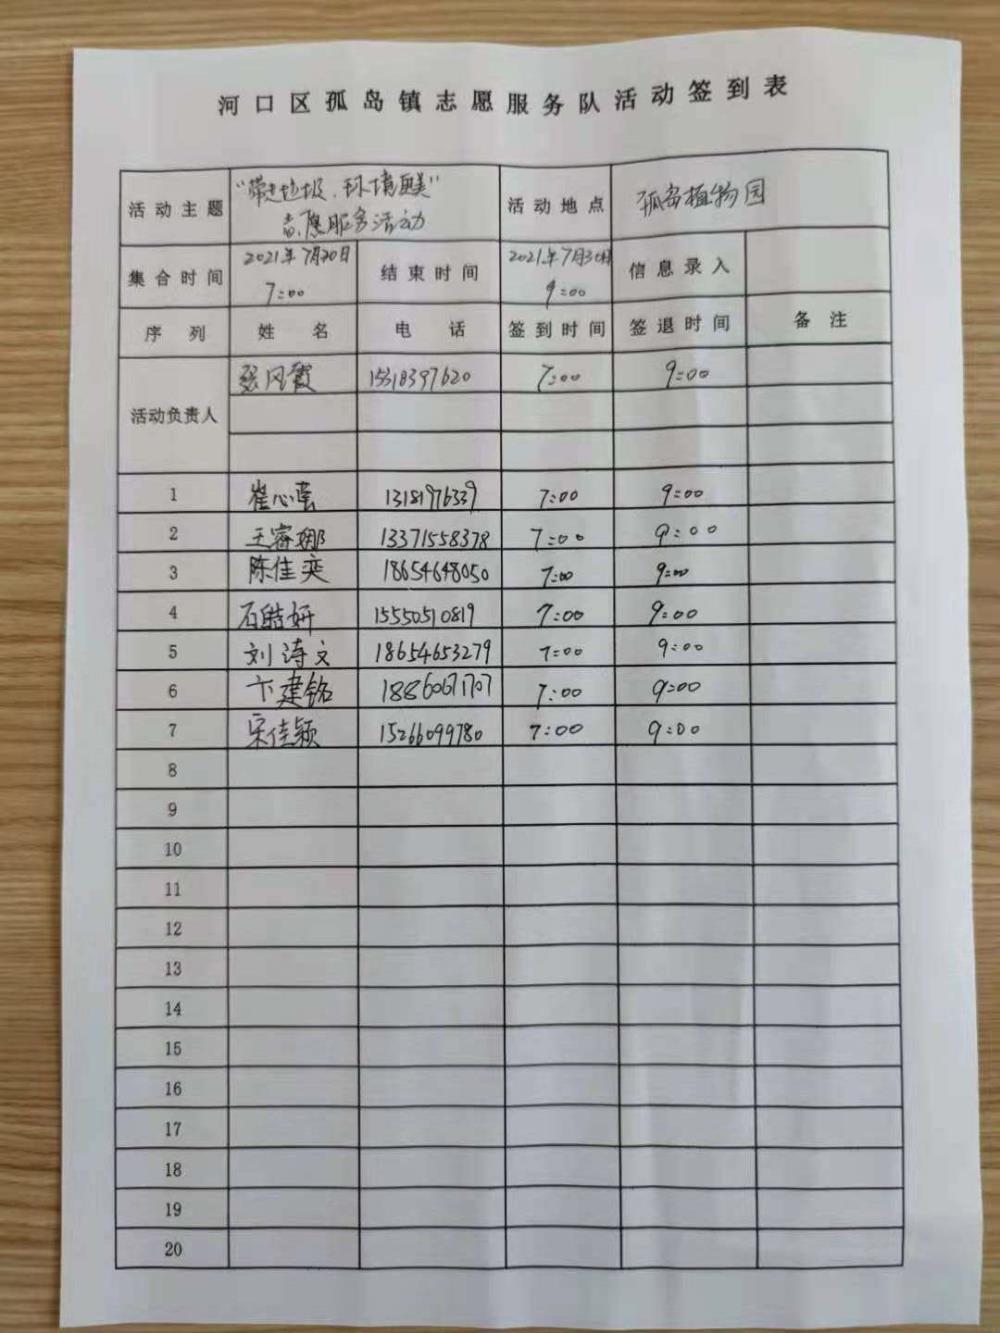 河口区孤岛镇志愿服务队活动签到表
活动主题 "带走垃圾,环境更美" 志愿服务活动 活动地点 孤岛植物园
集合时间 2021年7月30日 7:00 结束时间 2021年7月30日 9:00 信息录入
序列 姓名 电话 签到时间 签退时间 备注
活动负责人 张风霞 15318397620 7:00 9:00
1 崔心蕓 13181976339 7:00 9:00
2 王睿娜 13371558378 7:00 9:00
3 陈佳奕 18654648050 7:00 9:00
4 石皓妍 15550510819 7:00 9:00
5 刘诗文 18654653279 7:00 9:00
6 卞建铭 18860671707 7:00 9:00
7 宋佳颖 15266099780 7:00 9:00
8
9
10
11
12
13
14
15
16
17
18
19
20